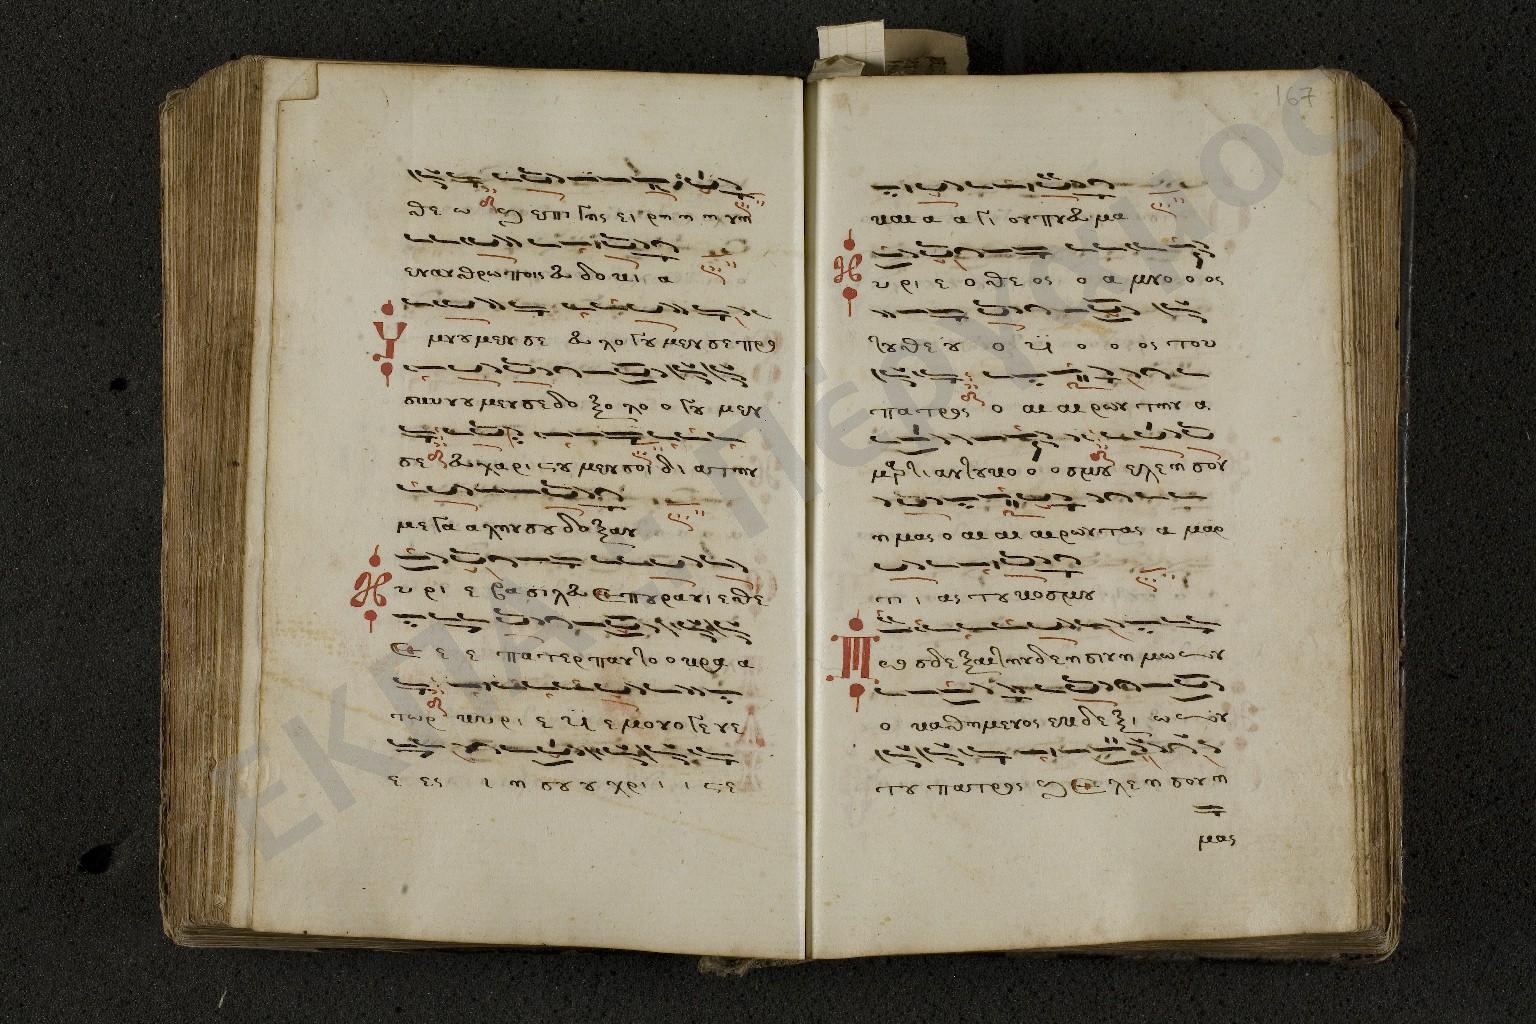 θε ω και επι γης ει ρη η η νη
εν αν θρω ποις ευ δο κι ι α
Υ μνου μεν σε ευ λο γου μεν σε προ
σκυνου μεν σε δο ξο λο ο γου μεν
σε ευ χαρι στου μεν σοι δι α την
με γα α λην σου δο ξαν
Κ υ ρι ε βα σι λευ ε που ρα νι ε θε
ε ε ε πα τερ παν το ο κρα α
τωρ κυ ρι ε υι ε μο νο γε νε
ε ες ι η σου ου χρι ι ι στε
167
και α α γι ον πνευ μα
Κ υ ρι ε ο θε ος ο α μνο ο ος
του θε ου ο υι ο ο ος του
πα τρος ο αι αι ρων την α
μαρτι αν του κο ο ο σμου ελε η σον
η μας ο αι αι αι ρων τας α μαρ
τι ι ας του κοσμου
Π ρο σδε ξαι την δε η σιν η μω ων
ο καθημενος εκ δε ξι ω ων
του πατρος και ε λε η σον η
μας
ΕΚΠΑ - Πέργαμος